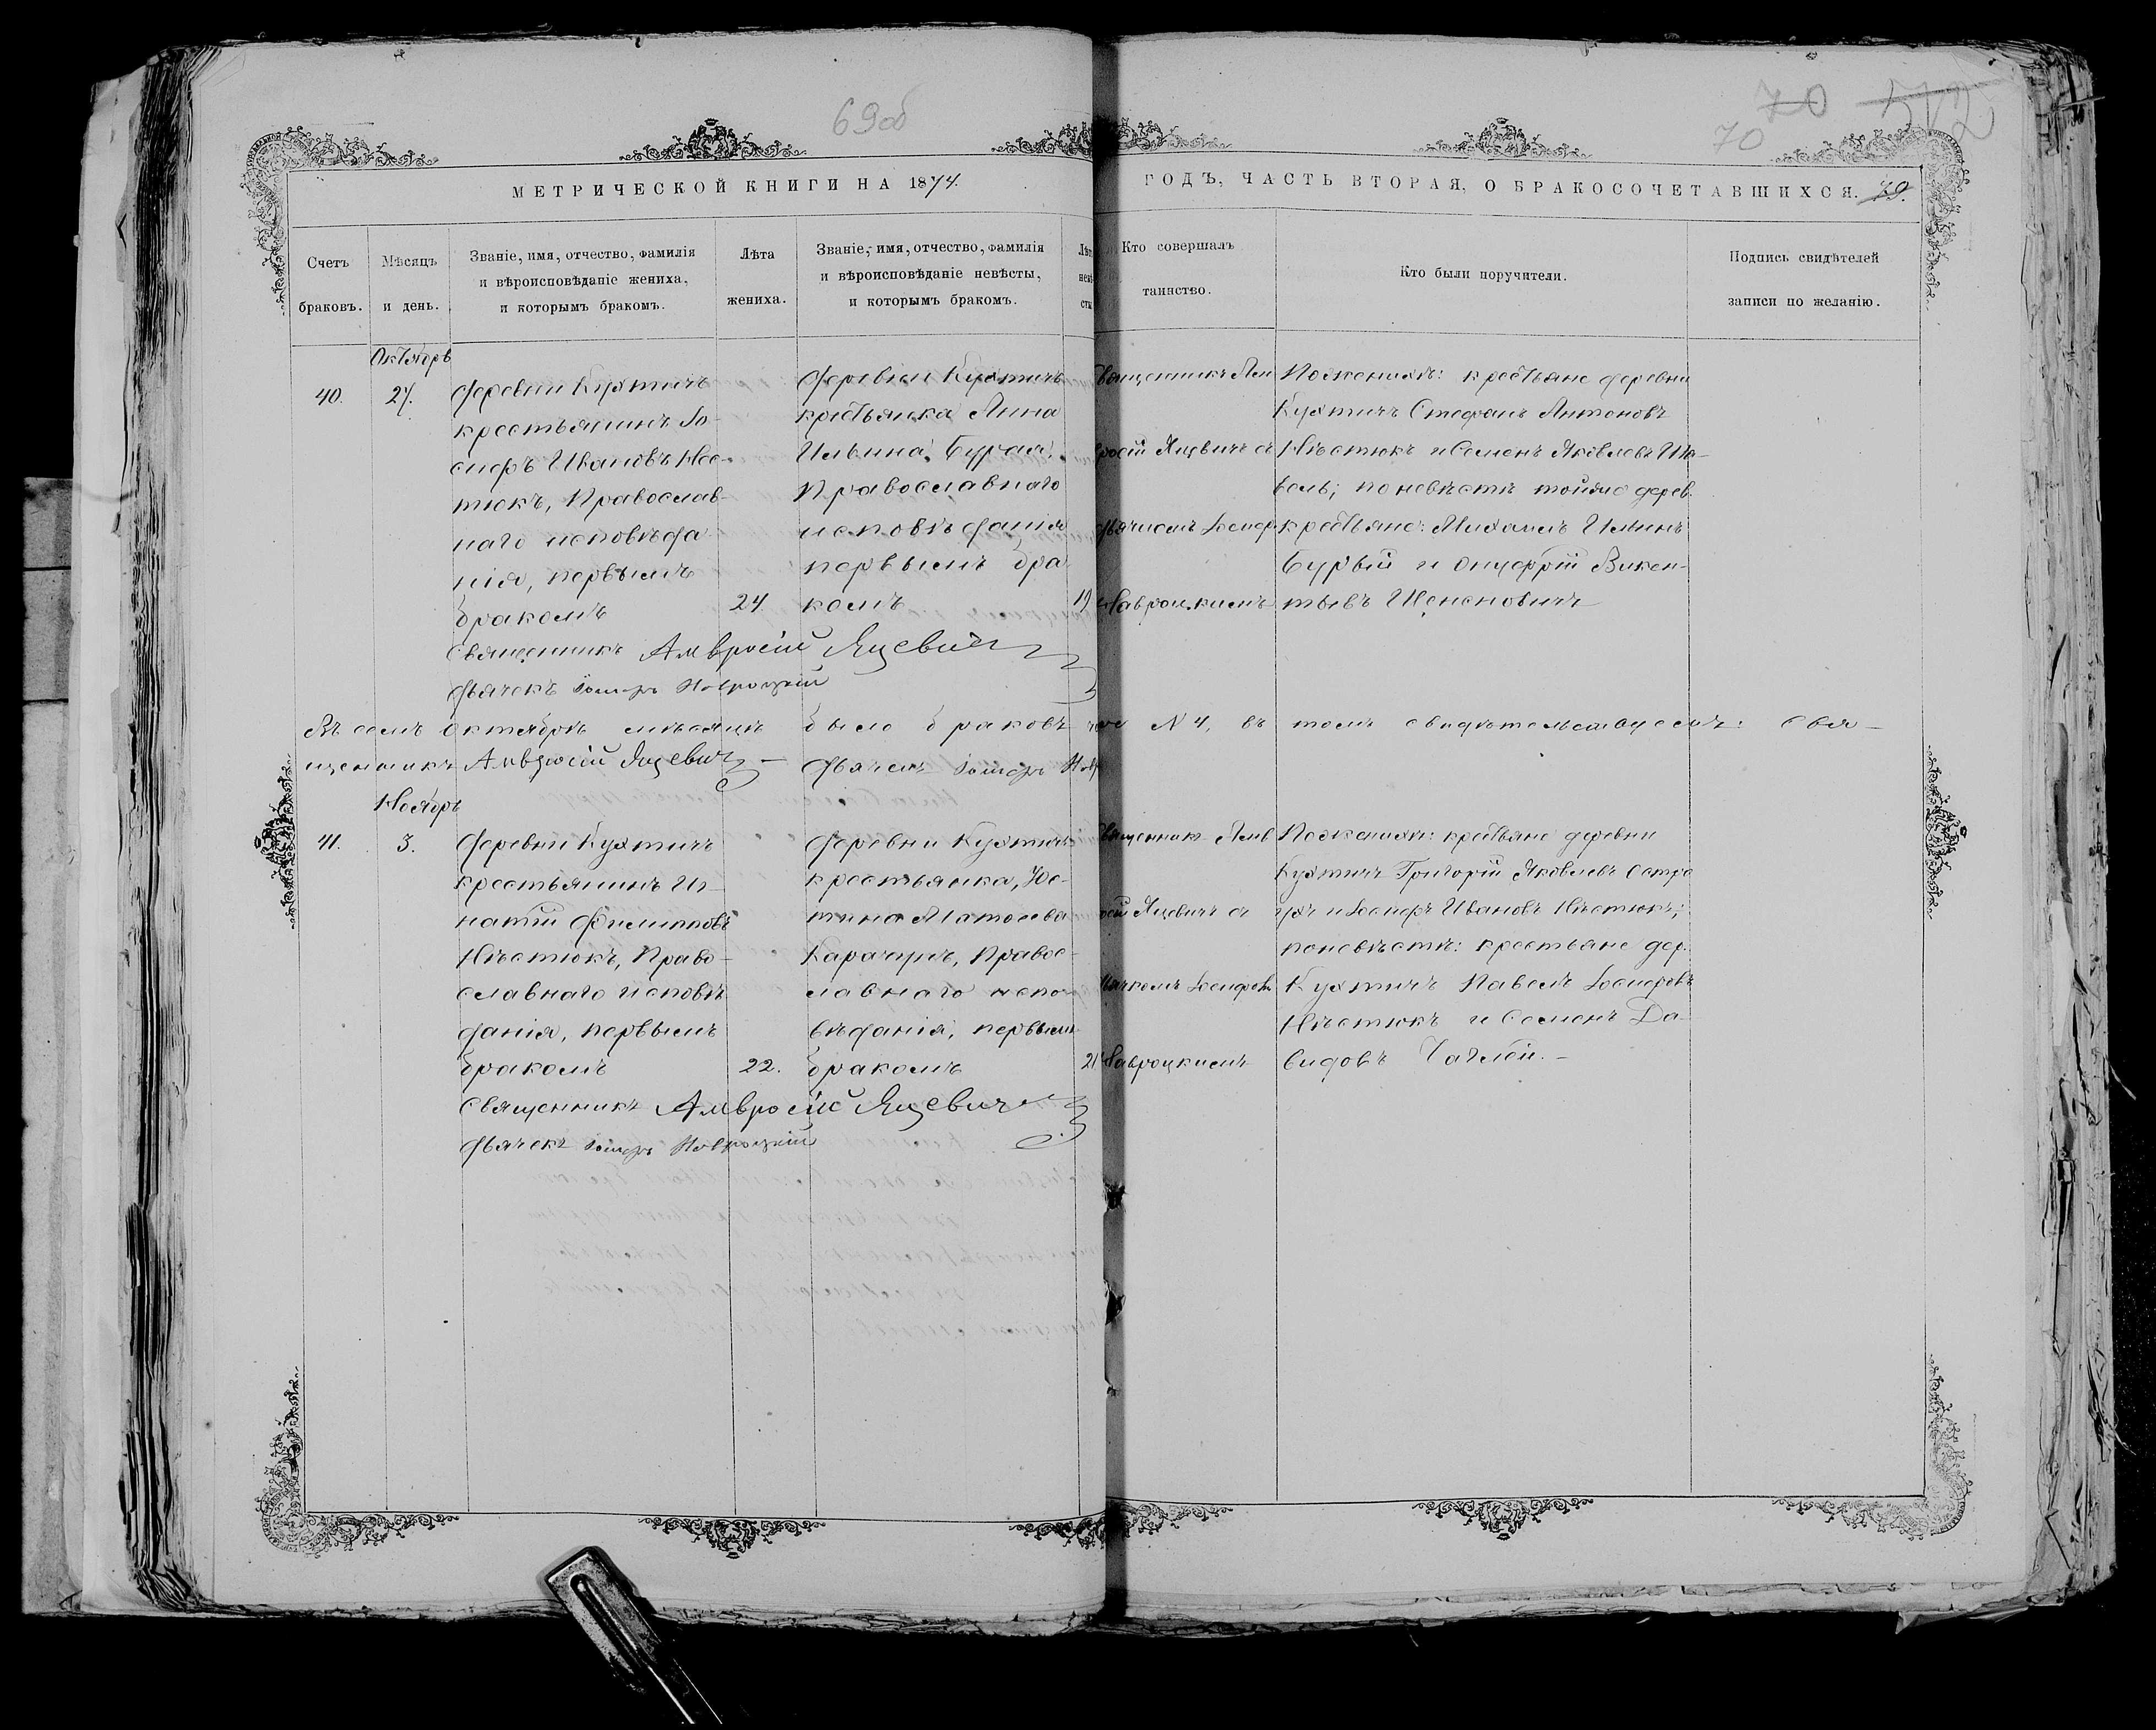 69об
70
70
512
МЕТРИЧЕСКОЙ КНИГИ НА 1874.
ГОДЪ, ЧАСТЬ ВТОРАЯ, О БРАКОСОЧЕТАВШИХСЯ.
Счетъ
браковъ.
Мѣсяцъ
и день.
Званіе, имя, отчество, фамилія
и вѣроисповѣданіе жениха,
и которымъ бракомъ.
Лѣта
жениха.
Званіе, имя, отчество, фамилія
и вѣроисповѣданіе невѣсты,
и которымъ бракомъ.
Кто совершалъ
таинство.
Кто были поручители.
Подпись свидѣтелей
записи по желанію.
Октябрь
40.
27.
деревни Кухтичъ
крестьянинъ Іо-
сифъ Ивановъ Нес-
тюкъ, Православ-
наго исповѣда
нія, первымъ
бракомъ
24
деревни Кухтичъ
крестьянка Анна
Ильина Бурая,
Православнаго
исповѣданія
первымъ бра
комъ
19
Священникъ Ам
росій Яцвичъ съ
дьячкомъ Іосиф
Навроцкимъ
По женихѣ: крестьяне деревни
Кухтичъ Стефанъ Антоновъ
Нѣстюкъ и Семенъ Яковлевъ
по невѣстѣ тойже дерев.
крестьяне: Михаилъ Ильинъ
Бурый и Онуфрій Викен-
тьевъ
Священникъ Амвросій Яцевичъ
дьячекъ Іосифъ Навроцкій
Въ семъ Октябрѣ мѣсяцѣ было браковъ № 4, въ томъ свидѣтельствуемъ: Свя-
щенникъ Амвросій Яцевичъ дьячекъ Іосифъ Нав
Ноябрь
41.
3.
деревни Кухтичъ
крестьянинъ Иг-
натій Филипповъ
Нѣстюкъ, Право-
славнаго исповѣ
данія, первымъ
бракомъ
22.
деревни Кухтичъ
крестьянка, Юс-
тина Матѳеева
Карачунъ, Правос-
лавнаго испо-
вѣданія, первымъ
бракомъ
21
Священникъ Амв
осій Яцевичъ съ
дьячкомъ Іосифомъ
Навроцкимъ
По женихѣ: крестьяне деревни
Кухтичъ Григорій Яковлевъ Остро
ухъ и Іосифъ Ивановъ Нѣстюкъ;
по невѣстѣ: крестьяне дер.
Кухтичъ Павелъ Іосифовъ
Нѣстюкъ и Семенъ Да-
видовъ
Священникъ Амвросій Яцевичъ
дьячекъ Іосифъ Навроцкій